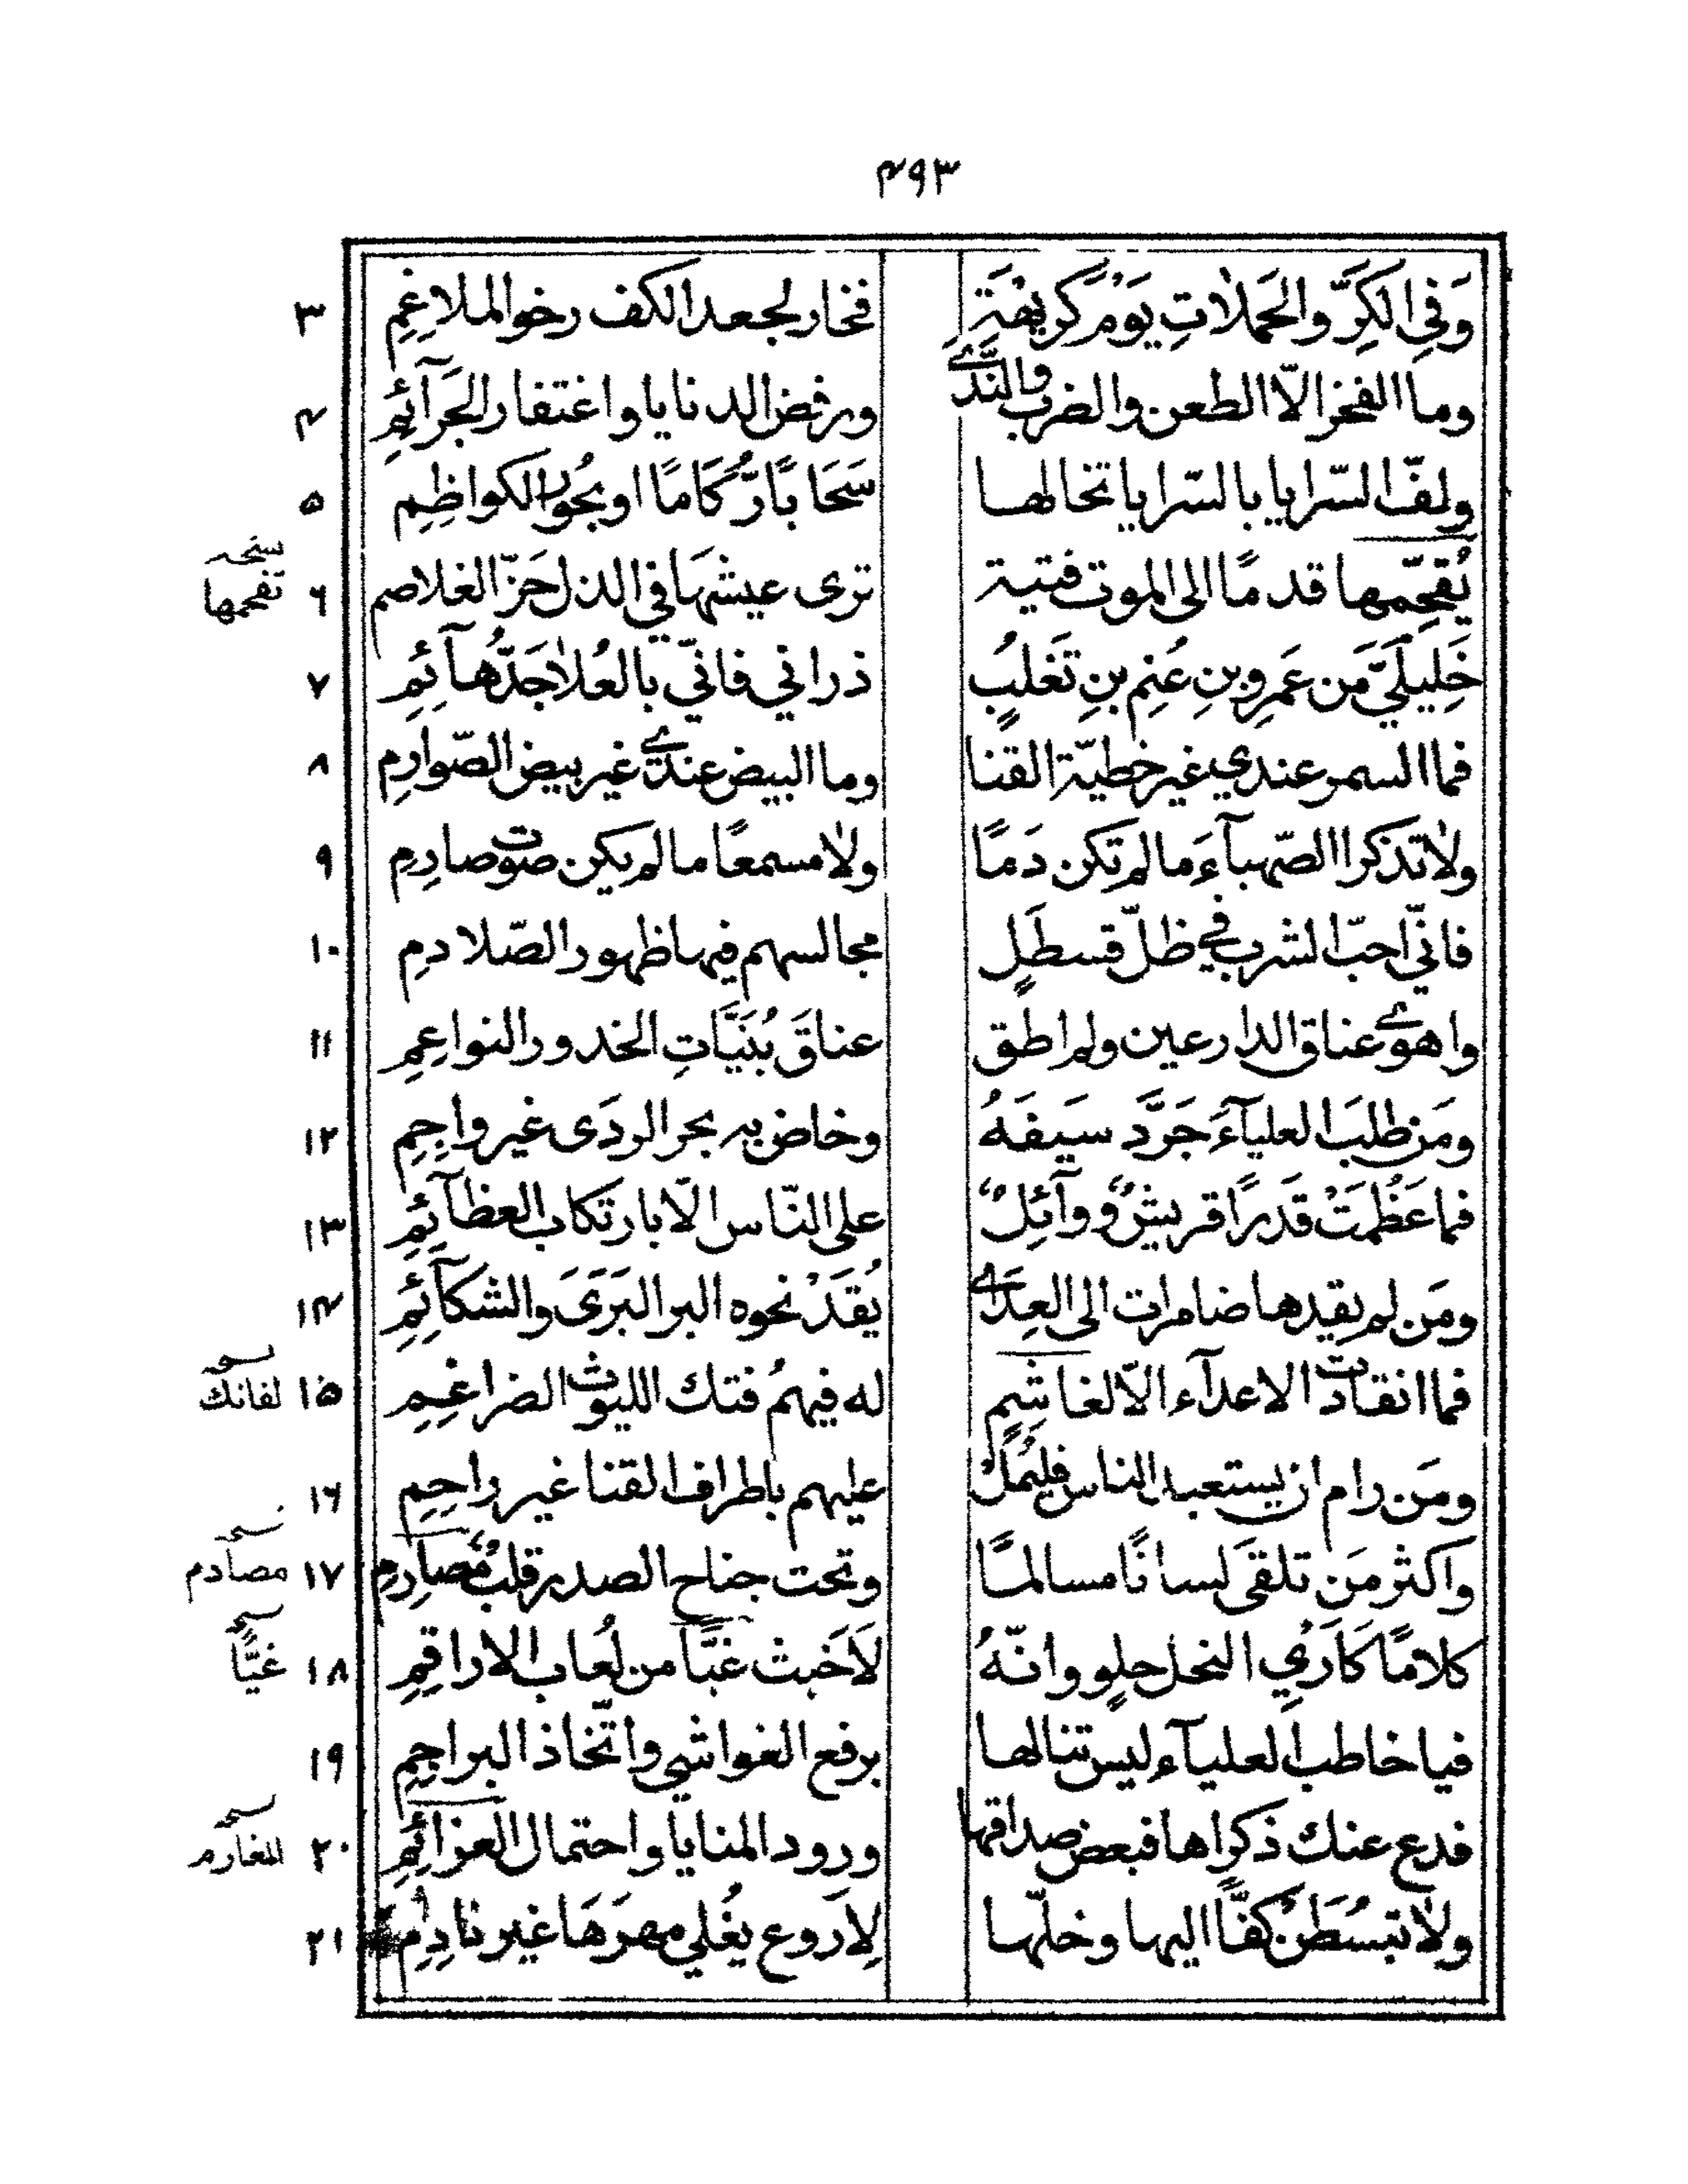 ۴۹۳
وَفِی الکَرِّ والحَمَلاتِ یَوْمَ کَرِیهَةٍ فخار لجعد الکف رخو الملاغِمِ ۳
وما الفخر الّا الطعن والضرب والنَّدی ورفض الدنایا واغتفار الجَرَآئِمِ ۴
ولفّ السّرایا بالسّرایا تخالها سَحَابًا رُکَامًا او بُحُورَ الکواظِمِ ۵
یُقحِّمها قدمًا الی الموت فتیة تری عیشَهَا فی الذل حَزّ الغلاصم ۶ نسخه تقحمها
خَلِیلَیَّ مَن عَمرِو بنِ غنمِ بنِ تَغلِبٍ ذرانی فانّی بالعُلا جَدُّ هآئِمِ ۷
فما السمر عندی غیر خطیّة القنا وما البیض عندی غیر بیض الصّوارِمِ ۸
ولا تذکرا الصّهبآءَ ما لم تکن دَمًا ولا مسمعًا ما لم یکن صوت صارِمِ ۹
فانّی احبّ الشرب فی ظلّ قسطَلٍ مجالسهم فیها ظهور الصّلادِمِ ۱۰
واهوی عناق الدارعین ولم اطق عناقَ بُنَیَّاتِ الخدور النواعِمِ ۱۱
ومَن طلبَ العلیآءَ جَرَّدَ سیفَهُ وخاض به بحر الردَی غیر واجِمِ ۱۲
فما عَظُمَتْ قَدرًا قریشٌ ووآئِلٌ علی النّاس الّا بارتکاب العظآئِمِ ۱۳
ومَن لم یقدها ضامرات الی العِدَی یُقَدْ نحوه البر البَرَی والشکآئِمِ ۱۴
فما انقادت الاعدآء الّا لغاشِمٍ له فیهمُ فتك اللیوث الضراغِمِ ۱۵ نسخه لفاتك
ومَن رام ان یستعبد الناس فلیَمُلْ علیهم باطراف القنا غیر راحِمِ ۱۶
واکثر مَن تلقَی لسانًا مسالمًا وتحت جناح الصدر قلبٌ مصارِمِ ۱۷ نسخه مصادم
کلامًا کَارْیِ النحل حلوٍ وانّهُ لَاَخبث غبًّا من لُعاب الاراقِمِ ۱۸ نسخه غیًّا
فیا خاطب العلیآء لیس تنالها برفع الغواشی واتّخاذ البراجِمِ ۱۹
فدع عنك ذکراها فبعض صداقها ورود المنایا واحتمال العزائِمِ ۲۰ نسخه المغارم
ولا تبسُطَنْ کفًّا الیها وخلّها لِاَروع یغْلی مهرَهَا غیر نادِمِ ۲۱